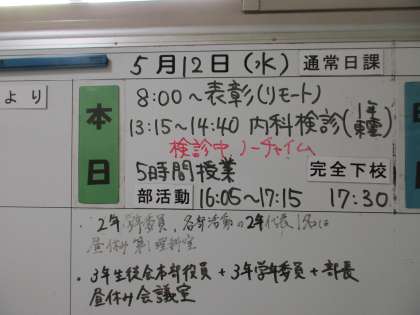 より
5月12日(水) 通常日課
本日
8:00~表彰(リモート)
13:15~14:40 内科検診(1年
検診中 ノーチャイム
5時間授業 完全下校
部活動 16:05~17:15 17:30
・2年学年委員、各部活動の2年代表1名は
昼休み 第1理科室
・3年生徒会本部役員+3年学年委員+部長
昼休み 会議室